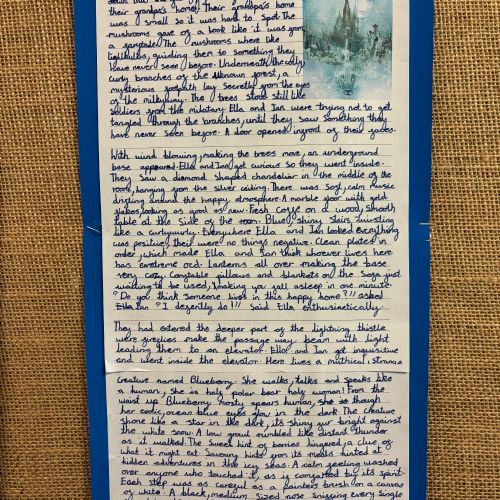 their grandpa's home, Their grandpa's home
was small so it was hard to spot. The
mushrooms gave of a look like it was from
a fairytale. The mushrooms where like
lightbulbs, guiding them to something they
have never seen before. Underneath the curly,
curly branches of the unknown forest, a
mysterious footpath lay secretly from the eyes
of the milkyway. The trees stood still like
soldiers from the military. Ella and Ian were trying not to get
tangled through the branches, until they saw something they
have never seen before. A door opened infront of their faces.
With wind blowing, making the trees move, an underground
base appeared. Ella and Ian get curious so they went inside.
They saw a diamond shaped chandelier in the middle of the
room, hanging from the silver ceiling. There was soft, calm music
drifting around the happy atmosphere. A marble floor with gold
flakes, looking as good as new. Fresh coffe on a wood, smooth
table at the side of the room. Blue, shiny stairs, twisting
like a curlywurly. Everywhere Ella and Ian looked everything
was positive, their were no things negative. Clean plates in
order which made Ella and Ian think whoever lives here
has extreme ocd. Lanterns all over making the base
very cozy. Comftable pillows and blankets on the sofa just
waiting to be used, making you fall asleep in one minute.
"Do you think someone lives in this happy home?!" asked
Ian "I defently do!!" Said Ella enthusinetically.
They had entered the deeper part of the lightning thistle
were fireflies make the passage way beam with light
leading them to an elevator. Ella and Ian got inquisitive
and went inside the elevator. Here lives a mythical, strange
Creature named Blueberry. She walks, talks and speaks like
a human, she is holy polar bear holy woman! From the
waist up Blueberry mostly apears human, she is though
her exotic, ocean blue eyes glow in the dark. The creature
shone like a star in the dark, its shiny fur bright against
the white snow. A low growl rumbled like distant thunder
as it walked. The sweet hint of berries lingered, a clue of
what it might eat. Savoury hints from its meals hinted at
hidden adventures in the icy seas. A calm feeling washed
over anyone who touched it, as if comforted by its spirit.
Each step was as careful as a painters brush on a canvas
of white. A black, medium sized nose sniffing every single